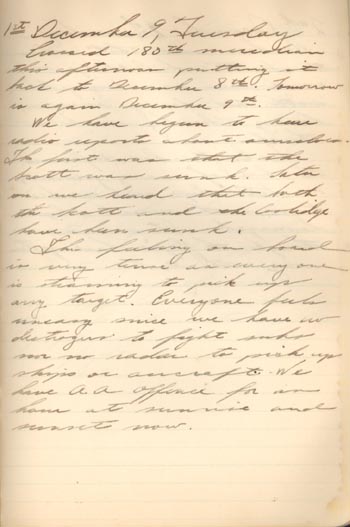 1st December 9, Tuesday
Crossed 180th meridian
this afternoon putting it
back to December 8th. Tomorrow
is again December 9th.
We have begun to hear
radio reports about ourselves.
The first was that the
Scott was sunk. Later
on we heard that both
the Scott and the Coolidge
have been sunk.
The feeling on board
is very tense as everyone
is straining to pick up
any target. Everyone feels
uneasy since we have no
destroyers to fight subs
nor no radar to pick up
ships or aircraft. We
have A.A. defence for an
hour at sunrise and
sunsets now.